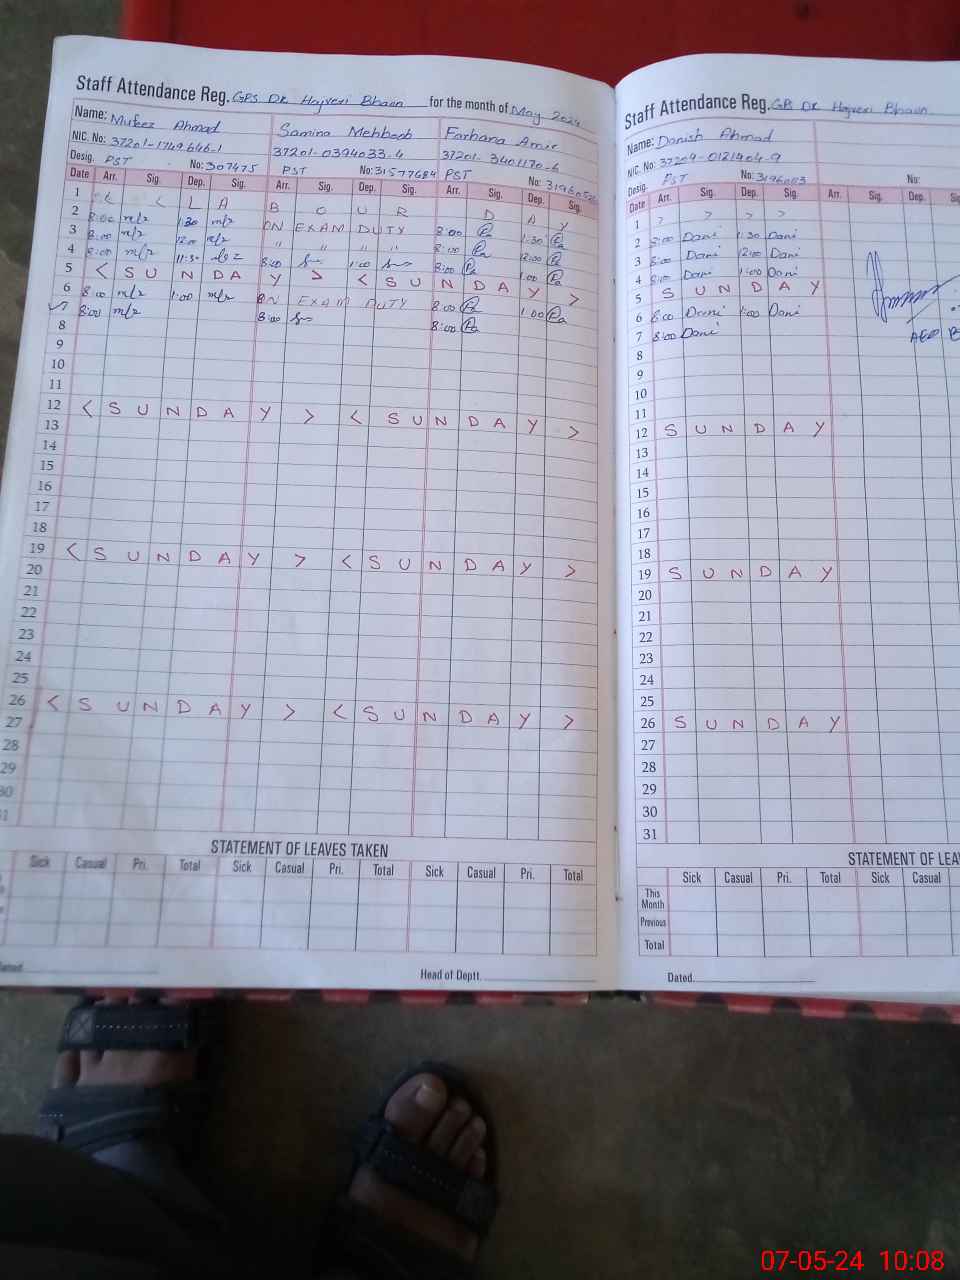 Staff Attendance Reg. GPS DK Hajveri Bhaon for the month of May 2024
Name: Mufeez Ahmad Samina Mehboob Farhana Amir
NIC. No: 37201-1749646-1 37201-0394033-4 37201-3401170-6
Desig. PST No: 307475 PST No: 31577684 PST No:
Date Arr. Sig. Dep. Sig. Arr. Sig. Dep. Sig. Arr. Sig. Dep. Sig.
1 < < L A B O U R D A Y
2 8:00 1:30 ON EXAM DUTY 8:00 1:30
3 8:00 12:00 " " " " 8:00 12:00
4 8:00 11:30 8:00 1:00 8:00 1:00
5 < S U N D A Y > < S U N D A Y >
6 8:00 1:00 ON EXAM DUTY 8:00 1:00
8:00 8:00 8:00
8
9
10
11
12 < S U N D A Y > < S U N D A Y >
13
14
15
16
17
18
19 < S U N D A Y > < S U N D A Y >
20
21
22
23
24
25
26 < S U N D A Y > < S U N D A Y >
27
28
29
30
31
STATEMENT OF LEAVES TAKEN
Sick Casual Pri. Total Sick Casual Pri. Total Sick Casual Pri. Total
Dated
Head of Deptt.
Staff Attendance Reg. GPS DK Hajveri Bhaon
Name: Danish Ahmad
NIC. No: 37209-0121404-9
Desig. PST No: No:
Date Arr. Sig. Dep. Sig. Arr. Sig. Dep.
1 > > > >
2 8:00 Dani 1:30 Dani
3 8:00 Dani 12:00 Dani
4 8:00 Dani 1:00 Dani
5 S U N D A Y
6 8:00 Dani 1:00 Dani
7 8:00 Dani
AEO
8
9
10
11
12 S U N D A Y
13
14
15
16
17
18
19 S U N D A Y
20
21
22
23
24
25
26 S U N D A Y
27
28
29
30
31
STATEMENT OF LEA
Sick Casual Pri. Total Sick Casual
This Month
Previous
Total
Dated
07-05-24 10:08